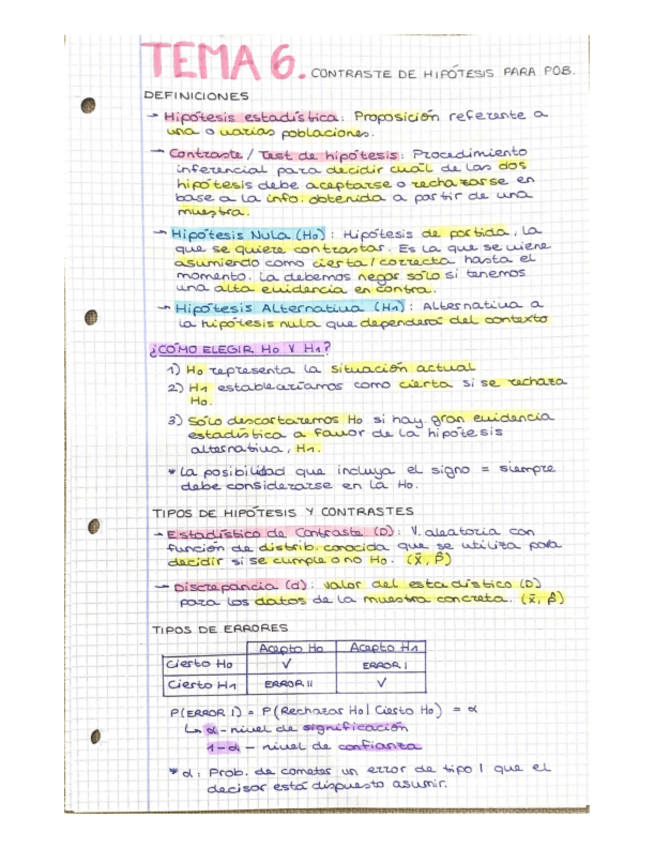 TEMA 6. CONTRASTE DE HIPÓTESIS PARA POB.
DEFINICIONES
→ Hipótesis estadística: Proposición referente a
una o varias poblaciones.
→ Contraste / Test de hipótesis: Procedimiento
inferencial para decidir cuál de las dos
hipótesis debe aceptarse o rechazarse en
base a la info. obtenida a partir de una
muestra.
→ Hipótesis Nula (H0): Hipótesis de partida, la
que se quiere contrastar. Es la que se viene
asumiendo como cierta/correcta hasta el
momento. La debemos negar sólo si tenemos
una alta evidencia en contra.
→ Hipótesis Alternativa (H1): Alternativa a
la hipótesis nula que dependerá del contexto
¿CÓMO ELEGIR H0 Y H1?
1) H0 representa la situación actual
2) H1 estableceríamos como cierta si se rechaza
H0.
3) Sólo descartaremos H0 si hay gran evidencia
estadística a favor de la hipótesis
alternativa, H1.
* La posibilidad que incluya el signo = siempre
debe considerarse en la H0.
TIPOS DE HIPÓTESIS Y CONTRASTES
→ Estadístico de Contraste (D): V. aleatoria con
función de distrib. conocida que se utiliza para
decidir si se cumple o no H0. (x̄, p̂)
→ Discrepancia (d): valor del estadístico (D)
para los datos de la muestra concreta. (x̄, p̂)
TIPOS DE ERRORES
Acepto H0 Acepto H1
Cierto H0 ✓ ERROR I
Cierto H1 ERROR II ✓
P(ERROR I) = P(Rechazar H0 | Cierto H0) = α
↳ α - nivel de significación
1-α - nivel de confianza
* α: Prob. de cometer un error de tipo I que el
decisor está dispuesto asumir.